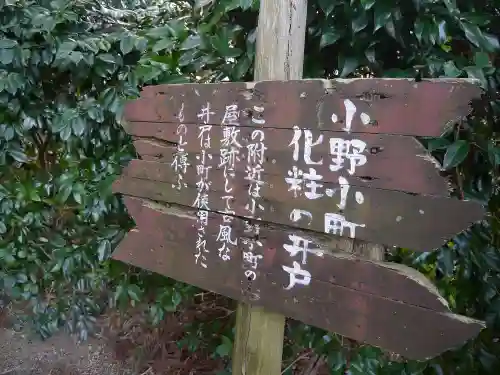 小野小町
化粧の井戸
この附近は小野小町の
屋敷跡にして古風な
井は小町が使用された
ものと傳ふ